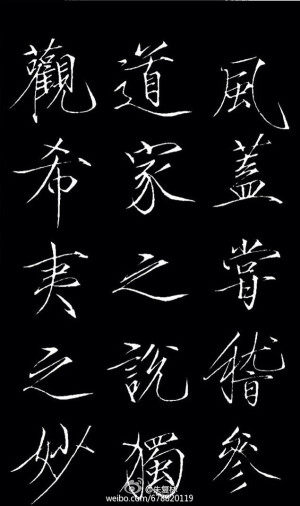 風蓋嘗稽參
道家之說獨
觀希夷之妙
weibo.com/678820119